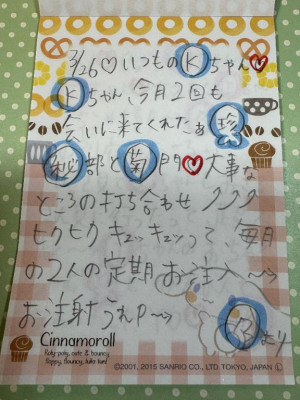 3/26♡いつものⓀちゃん♥
Ⓚちゃん、今月2回も
会いに来てくれたぁ珍
秘部と菊門♥大事な
ところの打ち合わせククク
ヒクヒクキュッキュッって、毎月
の2人の定期お注入〜〜
お注射うれP〜〜
より
Cinnamoroll
Roly-poly, cute & bouncy
floppy, flouncy, fluko fun!
©2001, 2015 SANRIO CO., LTD. TOKYO, JAPAN Ⓛ